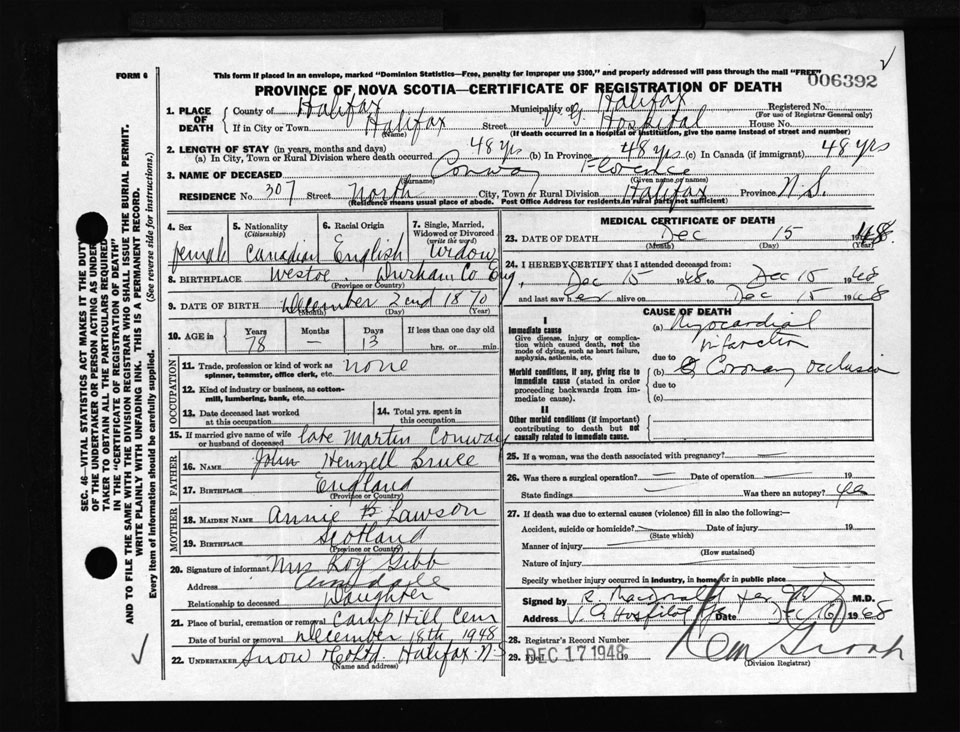 FORM 6
This form if placed in an envelope, marked "Dominion Statistics—Free, penalty for improper use $300," and properly addressed will pass through the mail "FREE"
006392
PROVINCE OF NOVA SCOTIA—CERTIFICATE OF REGISTRATION OF DEATH
1. PLACE OF DEATH County of Halifax Municipality of Halifax Registered No.
(For use of Registrar General only)
If in City or Town Halifax Street V. G. Hospital House No.
(Name) (If death occurred in a hospital or institution, give the name instead of street and number)
2. LENGTH OF STAY (in years, months and days)
(a) In City, Town or Rural Division where death occurred 48 yrs (b) In Province 48 yrs (c) In Canada (if immigrant) 48 yrs
3. NAME OF DECEASED Conway Florence
(Surname) (Given name or names)
RESIDENCE No. 307 Street North City, Town or Rural Division Halifax Province N.S.
(Residence means usual place of abode. Post Office Address for residents in rural parts not sufficient)
4. Sex female
5. Nationality (Citizenship) Canadian
6. Racial Origin English
7. Single, Married, Widowed or Divorced (write the word) Widow
8. BIRTHPLACE Westoe, Durham Co. Eng
(Province or Country)
9. DATE OF BIRTH December 2nd 1870
(Month) (Day) (Year)
10. AGE in Years 78 Months — Days 13 If less than one day old
hrs. or min.
OCCUPATION
11. Trade, profession or kind of work as spinner, teamster, office clerk, etc. none
12. Kind of industry or business, as cotton-mill, lumbering, bank, etc.
13. Date deceased last worked at this occupation
14. Total yrs. spent in this occupation
15. If married give name of wife or husband of deceased late Martin Conway
FATHER
16. NAME John Henzell Bruce
17. BIRTHPLACE England
(Province or Country)
MOTHER
18. MAIDEN NAME Annie B Lawson
19. BIRTHPLACE Scotland
(Province or Country)
20. Signature of informant Mrs Roy Gibb
Address Armdale
Relationship to deceased Daughter
21. Place of burial, cremation or removal Camp Hill Cem
Date of burial or removal December 18th 1948
22. UNDERTAKER Snow & Co Ltd. Halifax N.S
(Name and address)
MEDICAL CERTIFICATE OF DEATH
23. DATE OF DEATH Dec 15 1948
(Month) (Day) (Year)
24. I HEREBY CERTIFY that I attended deceased from:
Dec 15 1948 to Dec 15 1948
and last saw her alive on Dec 15 1948
CAUSE OF DEATH
I
Immediate cause
Give disease, injury or complication which caused death, not the mode of dying, such as heart failure, asphyxia, asthenia, etc.
(a) Myocardial infarction
due to
Morbid conditions, if any, giving rise to immediate cause (stated in order proceeding backwards from immediate cause).
(b) Coronary occlusion
due to
(c)
II
Other morbid conditions (if important) contributing to death but not causally related to immediate cause.
25. If a woman, was the death associated with pregnancy? —
26. Was there a surgical operation? — Date of operation — 19
State findings — Was there an autopsy? yes
27. If death was due to external causes (violence) fill in also the following:—
Accident, suicide or homicide? Date of injury 19
(State which)
Manner of injury
(How sustained)
Nature of injury
Specify whether injury occurred in industry, in home, or in public place
Signed by M.D.
Address V. G. Hospital Date Dec 16 1948
28. Registrar's Record Number
29. Filed DEC 17 1948 19
(Division Registrar)
SEC. 46—VITAL STATISTICS ACT MAKES IT THE DUTY
OF THE UNDERTAKER OR PERSON ACTING AS UNDER-
TAKER TO OBTAIN ALL THE PARTICULARS REQUIRED
IN THE "CERTIFICATE OF REGISTRATION OF DEATH"
AND TO FILE THE SAME WITH THE DIVISION REGISTRAR WHO SHALL ISSUE THE BURIAL PERMIT.
WRITE PLAINLY WITH UNFADING INK. THIS IS A PERMANENT RECORD.
Every item of information should be carefully supplied. (See reverse side for instructions.)